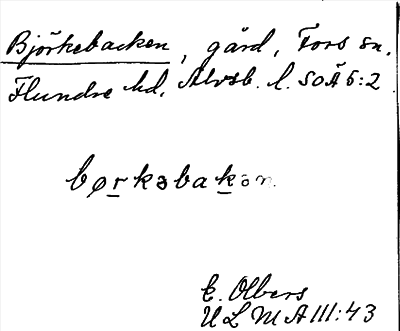 Björkebacken, gård, Fors sn,
Flundre hd, Älvsb. l. SOÄ 5:2
børkəbakən
E. Olbers
ULMA 111:43